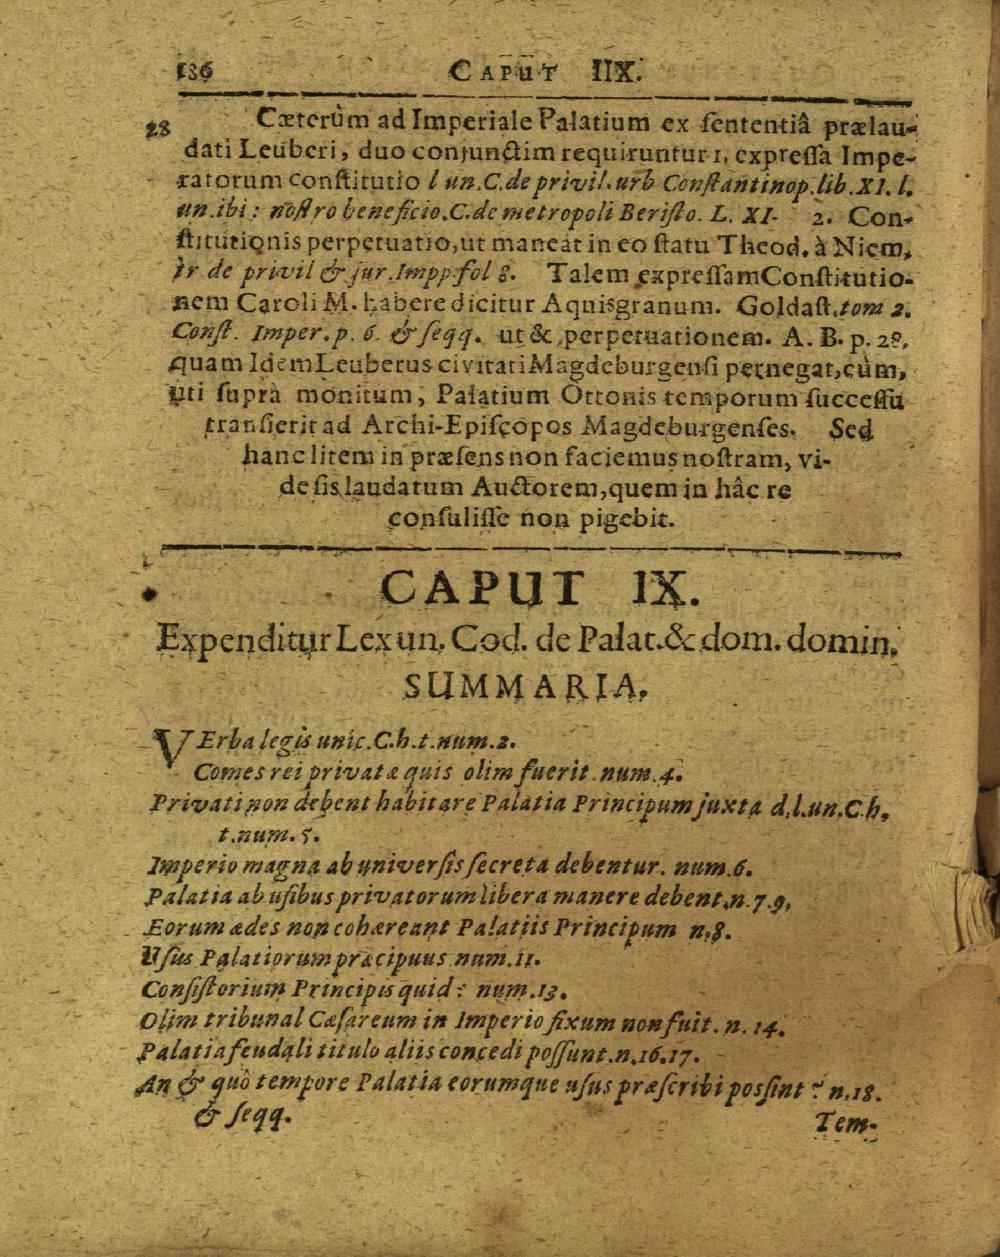 186 CAPUT IIX.
28 Cæterùm ad Imperiale Palatium ex sententiâ prælau-
dati Leuberi, duo conjunctim requiruntur 1, expressa Impe-
ratorum constitutio l un. C. de privil. urb Constantinop. lib. XI. l.
un. ibi: nostro beneficio. C. de metropoli Beristo. L. XI- 2. Con-
stitutionis perpetuatio, ut maneat in eo statu Theod. à Niem,
tr de privil & jur. Impp. fol 8. Talem expressam Constitutio-
nem Caroli M. habere dicitur Aquisgranum. Goldast. tom 2.
Const. Imper. p. 6. & seqq. ut &, perpetuationem. A. B. p. 28,
quam Idem Leuberus civitati Magdeburgensi pernegat, cùm,
uti suprà monitum, Palatium Ottonis temporum successu
transierit ad Archi-Episcopos Magdeburgenses. Sed
hanc litem in præsens non faciemus nostram, vi-
de sis laudatum Auctorem, quem in hâc re
consulisse non pigebit.
CAPUT IX.
Expenditur Lex un. Cod. de Palat. & dom. domin.
SUMMARIA.
VErba legis unic. C. h. t. num. 2.
Comes rei privatæ quis olim fuerit. num. 4.
Privati non debent habitare Palatia Principum juxta d. l. un. C. h,
t. num. 5.
Imperio magna ab universis secreta debentur. num. 6.
Palatia ab usibus privatorum libera manere debent, n. 7. 9,
Eorum ædes non cohæreant Palatiis Principum n, 8.
Usus Palatiorum præcipuus num. 11.
Consistorium Principis quid? num. 13.
Olim tribunal Cæsareum in Imperio fixum non fuit. n. 14.
Palatia feudali titulo aliis concedi possunt. n. 16. 17.
An & quô tempore Palatia eorumque usus præscribi possint? n. 18.
& seqq. Tem-